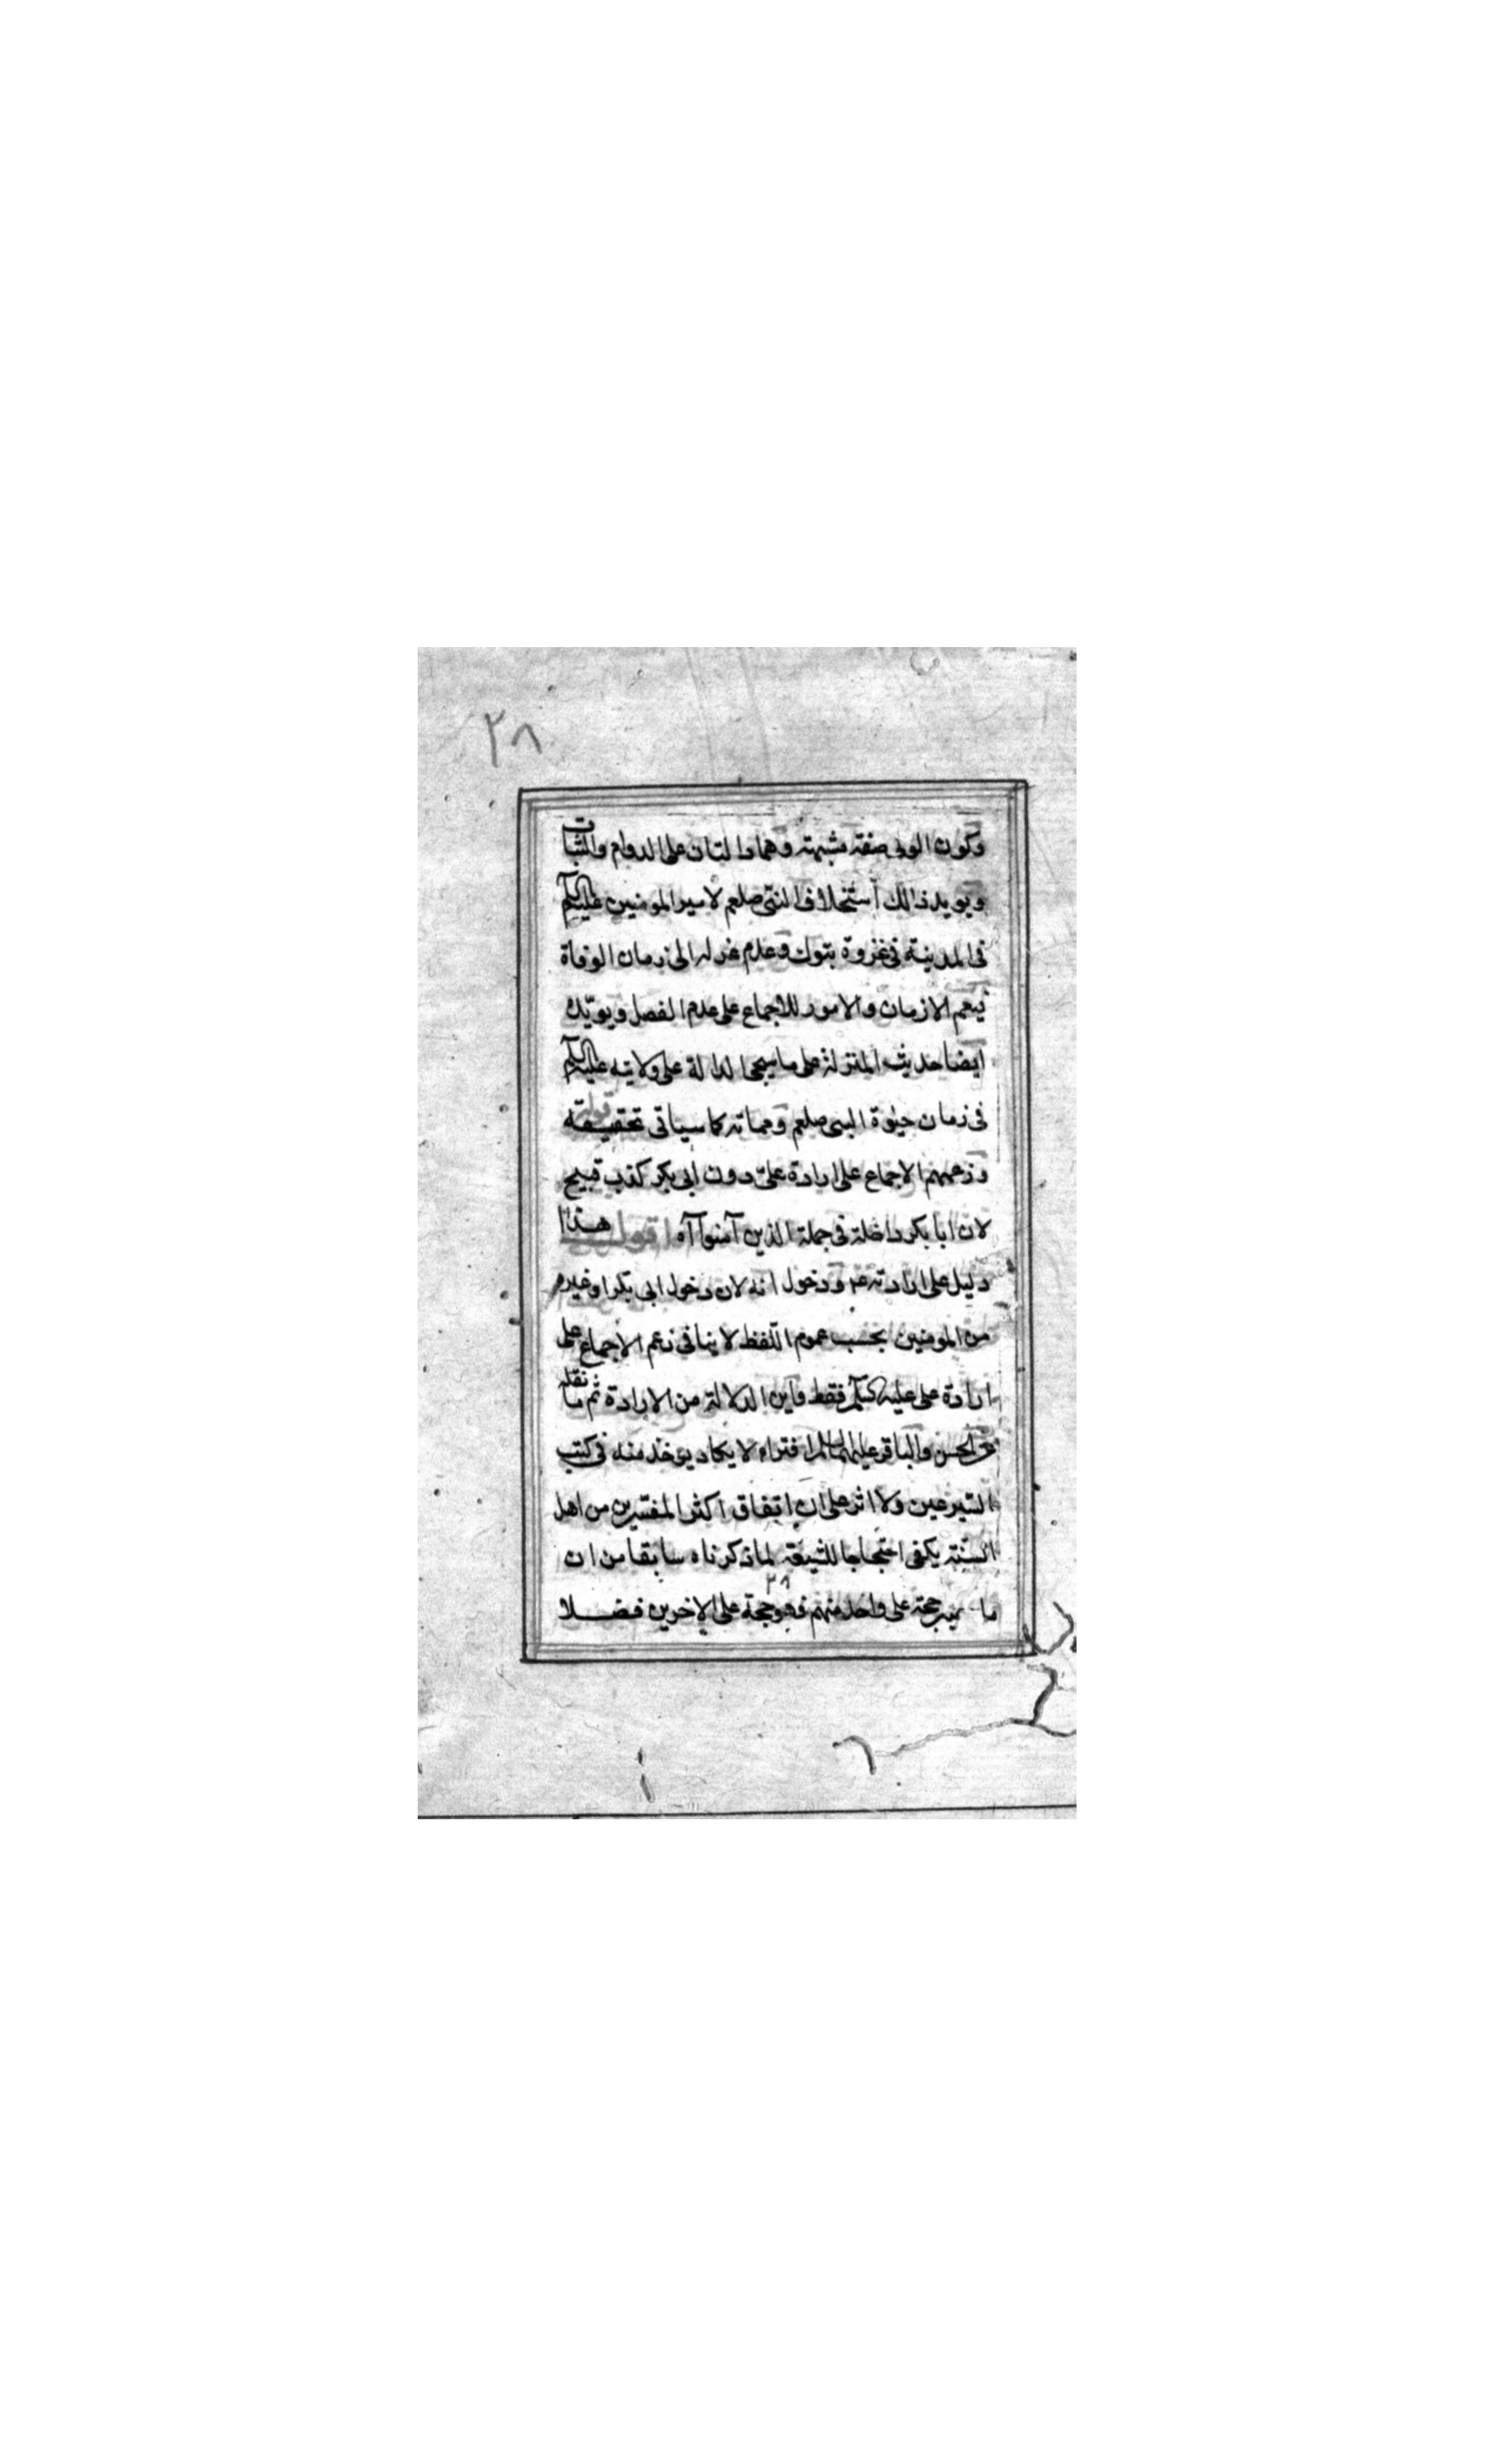 ٢٨
وكون الولى صفة مشبهته وهما دالتان على الدوام والثبات
ويويد ذالك أستخلاف النبي صلعم لامير المومنين عليه السلام
فى المدينة فى غزوة بتوك وعدم عزله الى زمان الوفاة
فيعم الازمان والامور للاجماع على عدم الفصل ويويّده
ايضا حديث المنزلة على ما سيجى الدالة على ولايته عليه السلام
فى زمان حيوة النبى صلعم ومماته كما سياتى تحقيقه قوله
وزعمهم الاجماع على ارادة علىّ دون ابى بكر كذب قبيح
لان ابا بكر داخلة فى جملة الذين آمنوا آه اقول هذا
دليل على ارادته ودخول انه لان دخول ابى بكر او غيره
من المومنين بحسب عموم اللفظ لا ينافى زعم الاجماع على
ارادة على عليه السلام فقط واين الدلالة من الارادة ثم ما نقله
عن الحسن والباقر عليهما السلام افتراء لا يكاد يوخذ منه فى كتب
ولا اثر على ان اتفاق اكثر المفسرين من اهل
السنّته يكفى احتجاجا للشيعة لما ذكرناه سابقا من ان
ما حجة على واحد منهم فهو حجة على الاخرين فضلا
٢٨